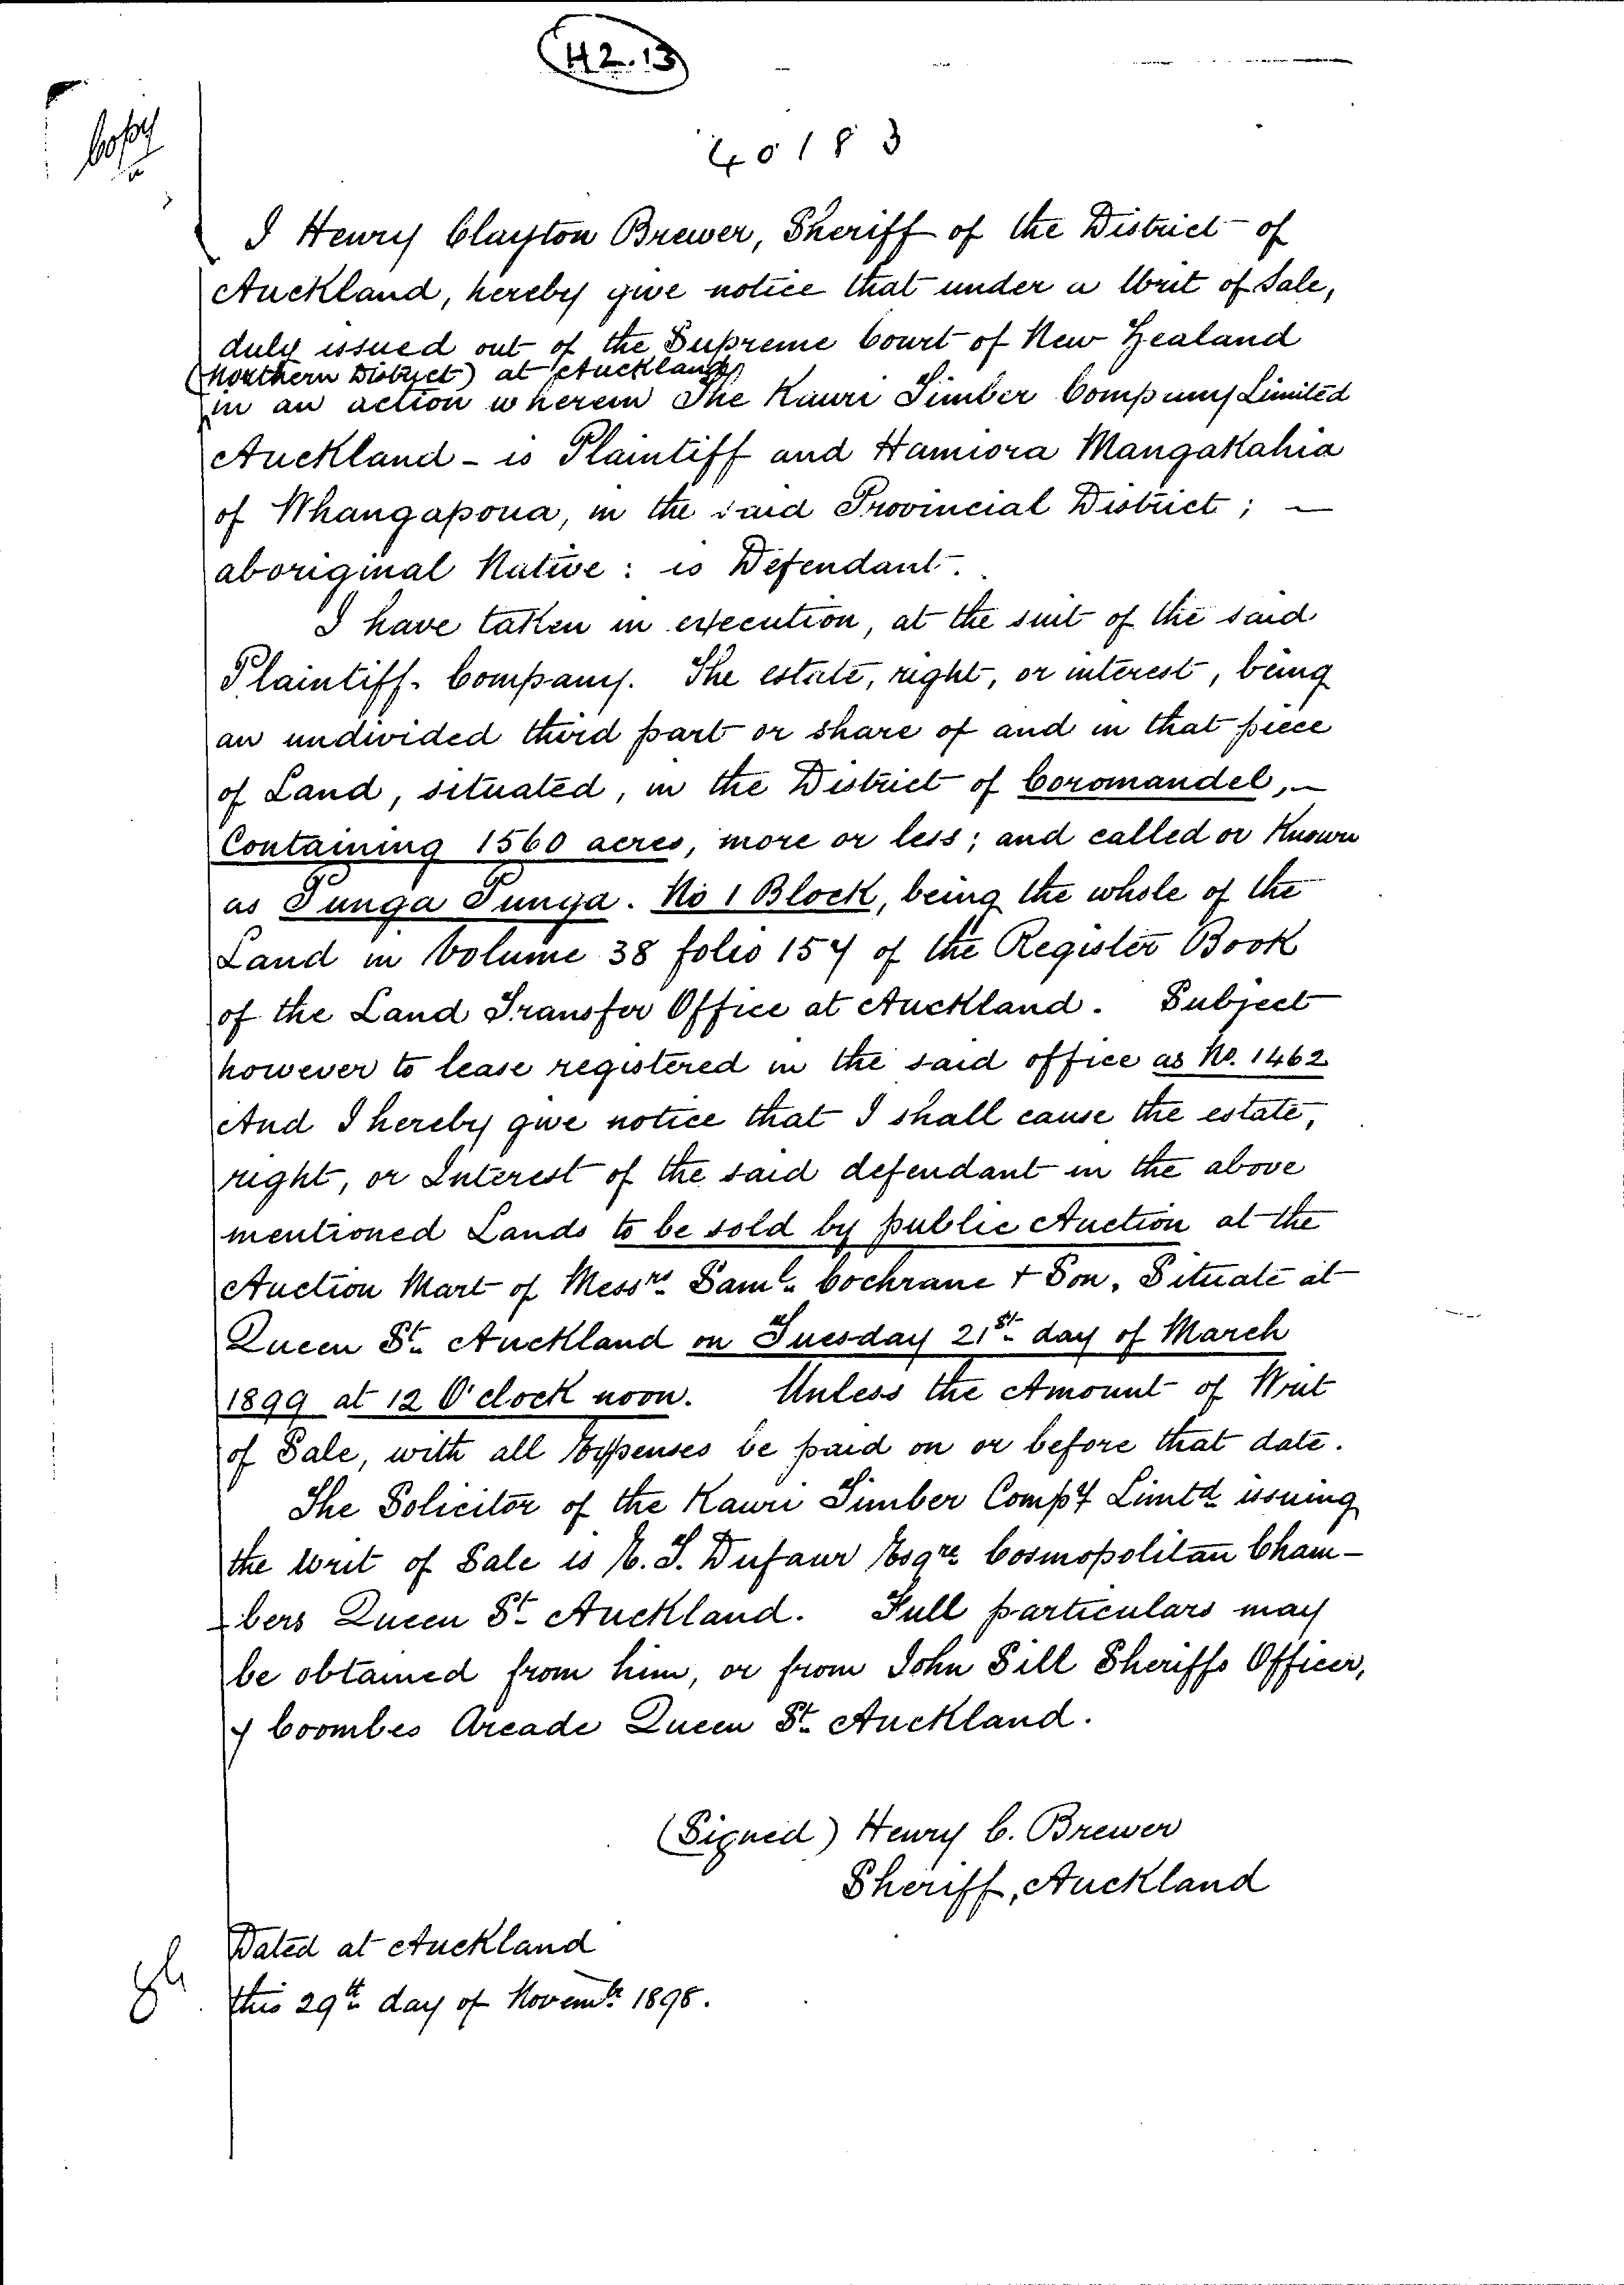 H2.13
Copy
40183
I Henry Clayton Brewer, Sheriff of the District of
Auckland, hereby give notice that under a Writ of Sale,
duly issued out of the Supreme Court of New Zealand
(Northern District) at Auckland
in an action wherein The Kauri Timber Company Limited
Auckland - is Plaintiff and Hamiora Mangakahia
of Whangapoua, in the said Provincial District; —
aboriginal Native: is Defendant.
I have taken in execution, at the suit of the said
Plaintiff. Company. The estate, right, or interest, being
an undivided third part or share of and in that piece
of Land, situated, in the District of Coromandel, —
Containing 1560 acres, more or less; and called or Known
as Punga Punga. No 1 Block, being the whole of the
Land in Volume 38 folio 157 of the Register Book
of the Land Transfer Office at Auckland. Subject
however to lease registered in the said office as No. 1462
And I hereby give notice that I shall cause the estate,
right, or Interest of the said defendant in the above
mentioned Lands to be sold by public Auction at the
Auction Mart of Messrs. Saml. Cochrane + Son, Situate at
Queen St. Auckland on Tuesday 21st. day of March
1899 at 12 O'clock noon. Unless the Amount of Writ
of Sale, with all Expenses be paid on or before that date.
The Solicitor of the Kauri Timber Compy Limtd. issuing
the Writ of Sale is E. T. Dufaur Esqre. Cosmopolitan Cham-
-bers Queen St. Auckland. Full particulars may
be obtained from him, or from John Sill Sheriffs Officer,
7 Coombes Arcade Queen St. Auckland.
(Signed) Henry C. Brewer
Sheriff, Auckland
Dated at Auckland
this 29th. day of Novembr. 1898.